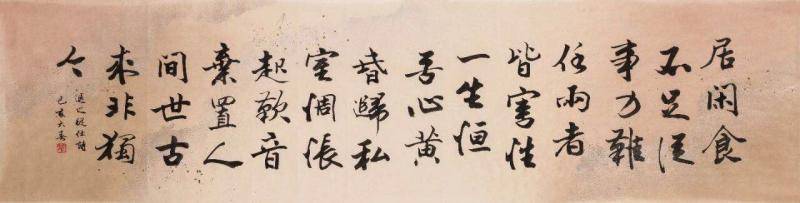 居閑食
不足從
事力難
任兩者
皆害性
一生恒
苦心黄
昏歸私
室惆悵
起歎音
棄置人
間世古
来非獨
今
退之從仕詩
己亥大